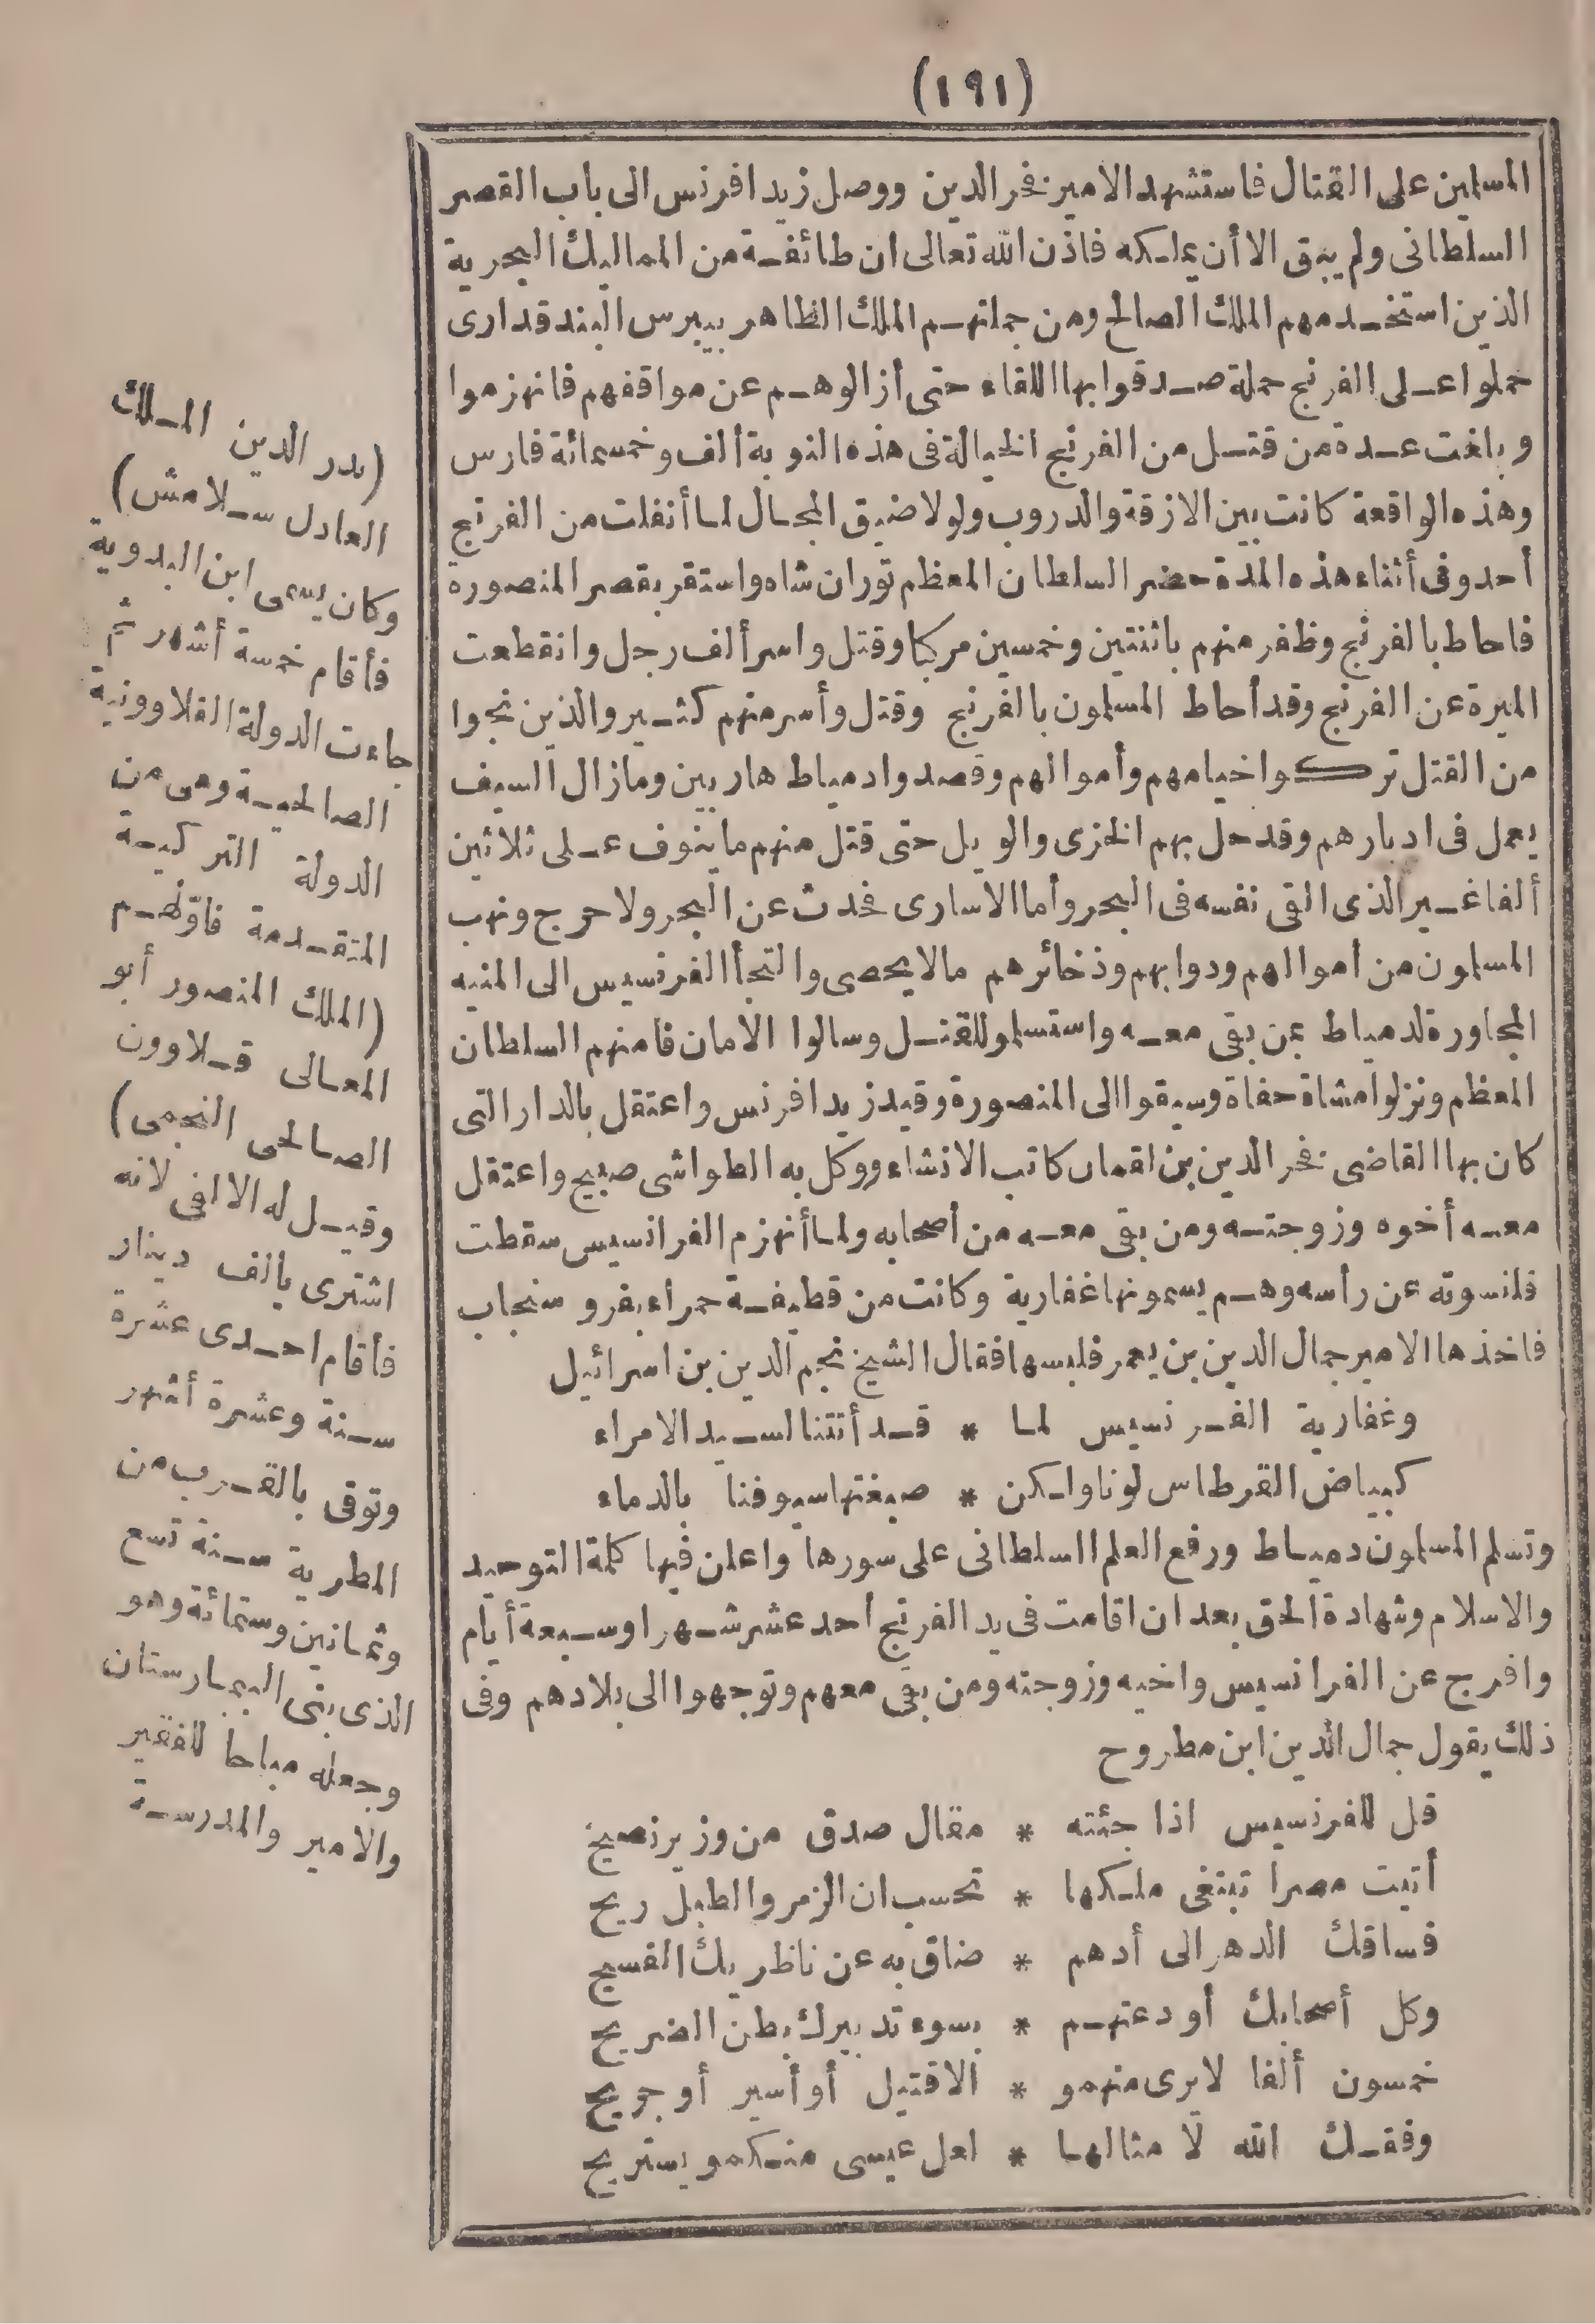 (١٩١)
المسلمين على القتال فاستشهد الامير فخر الدين ووصل زيد افرنس الى باب القصر
السلطانى ولم يبق الا أن يملكه فاذن الله تعالى ان طائفة من المماليك البحرية
الذين استخدمهم الملك الصالح ومن جملتهم الملك الظاهر بيبرس البندقدارى
حملوا على الفرنج حملة صدقوا بها اللقاء حتى أزالوهم عن مواقفهم فانهزموا
وبلغت عدة من قتل من الفرنج الخيالة فى هذه النوبة ألف وخمسمائة فارس
وهذه الواقعة كانت بين الازقة والدروب ولولا ضيق المجال لما أنفلت من الفرنج
أحد وفى أثناء هذه المدة حضر السلطان المعظم توران شاه واستقر بقصر المنصورة
فاحاط بالفرنج وظفر منهم باثنتين وخمسين مركبا وقتل واسر ألف رجل وانقطعت
الميرة عن الفرنج وقد أحاط المسلمون بالفرنج وقتل وأسر منهم كثير والذين نجوا
من القتل تركوا خيامهم وأموالهم وقصدوا دمياط هاربين وما زال السيف
يعمل فى ادبارهم وقد حل بهم الخزى والويل حتى قتل منهم ما ينوف على ثلاثين
ألفا غير الذى القى نفسه فى البحر وأما الاسارى فحدث عن البحر ولا حرج ونهب
المسلمون من أموالهم ودوابهم وذخائرهم مالا يحصى والتجأ الفرنسيس الى المنيه
المجاورة لدمياط بمن بقى معه واستسلمو للقتل وسالوا الامان فامنهم السلطان
المعظم ونزلوا مشاة حفاة وسيقوا الى المنصورة وقيد زيد افرنس واعتقل بالدار التى
كان بها القاضى فخر الدين بن لقمان كاتب الانشاء ووكل به الطواشى صبيح واعتقل
معه أخوه وزوجته ومن بقى معه من أصحابه ولما أنهزم الفرانسيس سقطت
قلنسوته عن رأسه وهم يسمونها غفارية وكانت من قطيفة حمراء بفرو سنجاب
فاخذها الامير جمال الدين بن يعمر فلبسها فقال الشيخ نجم الدين بن اسرائيل
وغفارية الفرنسيس لما * قد أتتنا لسيد الامراء
كبياض القرطاس لونا ولكن * صبغتها سيوفنا بالدماء
وتسلم المسلمون دمياط ورفع العلم السلطانى على سورها واعلن فيها كلمة التوحيد
والاسلام وشهادة الحق بعد ان اقامت فى يد الفرنج احد عشر شهرا وسبعة أيام
وافرج عن الفرانسيس واخيه وزوجته ومن بقى معهم وتوجهوا الى بلادهم وفى
ذلك يقول جمال الدين ابن مطروح
قل للفرنسيس اذا جئته * مقال صدق من وزير نصيح
أتيت مصرا تبتغى ملكها * تحسب ان الزمر والطبل ريح
فساقك الدهر الى أدهم * ضاق به عن ناظريك الفسيح
وكل أصحابك أودعتهم * بسوء تدبيرك بطن الضريح
خمسون ألفا لا يرى منهمو * الا قتيل أو أسير أو جريح
وفقك الله لا مثالها * لعل عيسى منكمو يستريح
(بدر الدين الملك
العادل سلامش)
وكان يسمى ابن البدوية
فأقام خمسة أشهر ثم
جاءت الدولة القلاوونية
الصالحية وهى من
الدولة التركية
المتقدمة فاولهم
(الملك المنصور أبو
المعالى قلاوون
الصالحى النجمى)
وقيل له الالفى لانه
اشترى بالف دينار
فأقام احدى عشرة
سنة وعشرة أشهر
وتوفى بالقرب من
المطرية سنة تسع
وثمانين وستمائة وهو
الذى بنى البيمارستان
وجعله مباحا للفقير
والامير والمدرسة